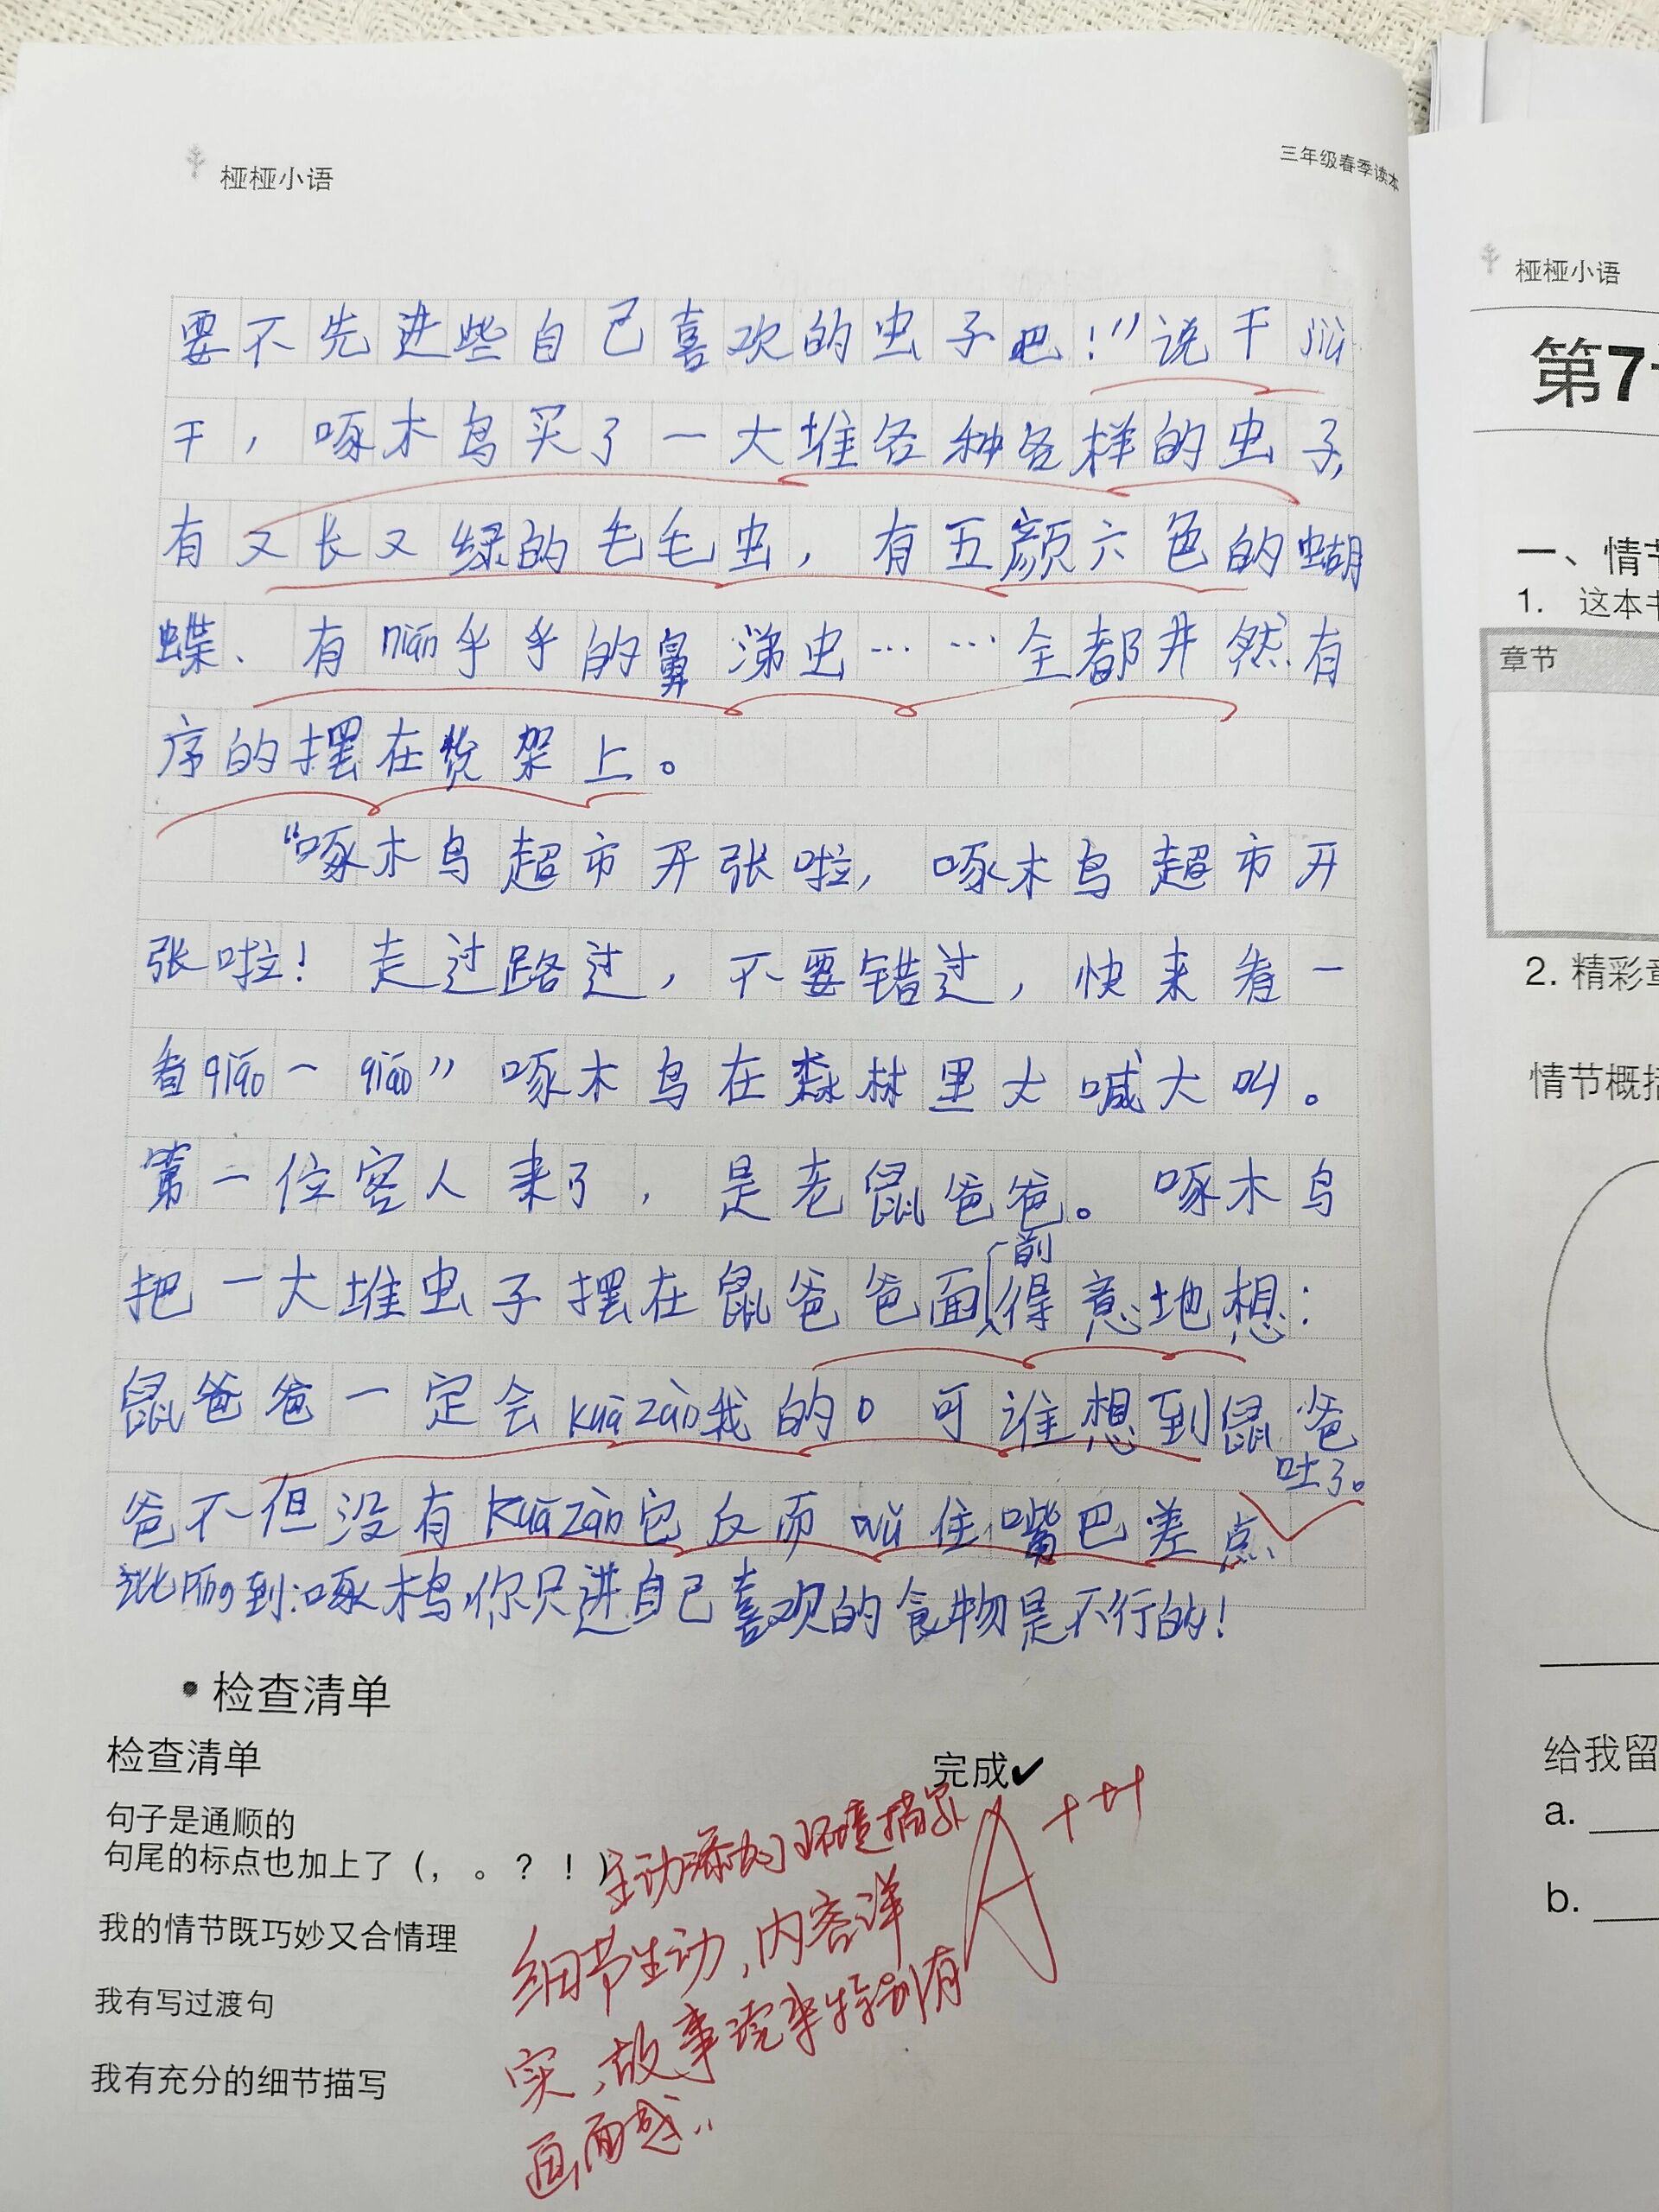 桠桠小语
三年级春季读本
要不先进些自己喜欢的虫子吧！”说干jiù
干，啄木鸟买了一大堆各种各样的虫子，
有又长又绿的毛毛虫，有五颜六色的蝴
蝶、有nián乎乎的鼻涕虫……全都井然有
序的摆在货架上。
“啄木鸟超市开张啦，啄木鸟超市开
张啦！走过路过，不要错过，快来看一
看qiáo一qiáo”啄木鸟在森林里大喊大叫。
第一位客人来了，是老鼠爸爸。啄木鸟
把一大堆虫子摆在鼠爸爸面前得意地想：
鼠爸爸一定会kuāzàn我的。可谁想到鼠爸
爸不但没有kuāzàn它反而wǔ住嘴巴差点吐了。
批píng到：啄木鸟，你只进自己喜欢的食物是不行的！
• 检查清单
检查清单 完成✔
句子是通顺的
句尾的标点也加上了（，。？！）
我的情节既巧妙又合情理
我有写过渡句
我有充分的细节描写
主动添加了环境描写
细节生动，内容详
实，故事读来特别有
画面感..
A+++
桠桠小语
第7
一、情节
1. 这本书
章节
2. 精彩章
情节概括
给我留
a.
b.